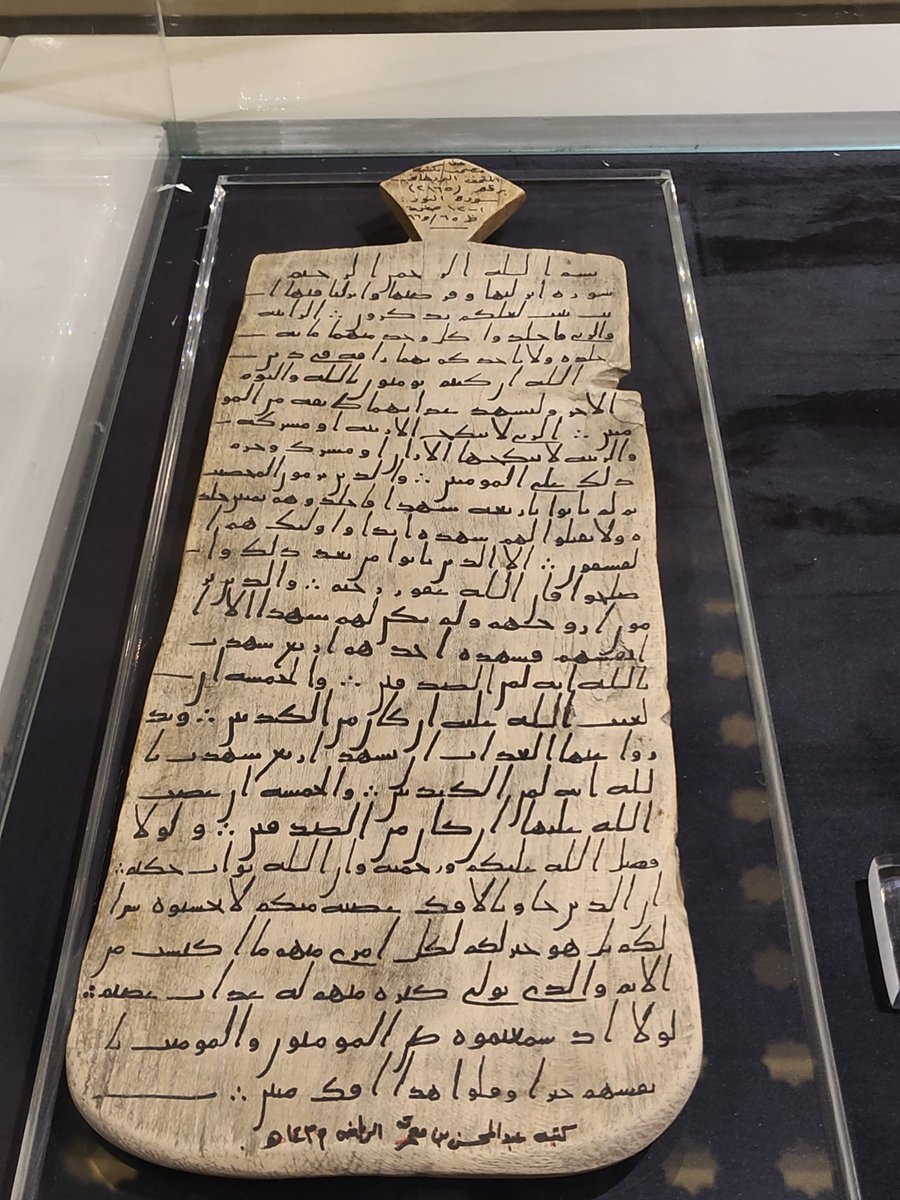 (٢١٦٥)
سورة النور
بسم الله الرحمن الرحيم
سورة انزلنها وفرضنها وانزلنا فيها ا
يت بينت لعلكم تذكرون ∴ الزانية
والزني فاجلدوا كل وحد منهما مائة
جلدة ولا تاخذكم بهما رافة في دين
الله ان كنتم تومنون بالله واليوم
الاخر وليشهد عذابهما طئفة من المو
منين ∴ الزني لا ينكح الا زنية او مشركة
والزنية لا ينكحها الا زان او مشرك وحرم
ذلك على المومنين ∴ والذين يرمون المحصنت
ثم لم ياتوا باربعة شهدا فاجلدوهم ثمنين جلد
ة ولا تقبلوا لهم شهدة ابدا واوليك هم ا
لفسقون ∴ الا الذين تابوا من بعد ذلك وا
صلحوا فان الله غفور رحيم ∴ والذين ير
مون ازوجهم ولم يكن لهم شهدا الا ا
نفسهم فشهدة احدهم اربع شهدت
بالله انه لمن الصدقين ∴ والخمسة ان
لعنت الله عليه ان كان من الكذبين ∴ ويد
روا عنها العذاب ان تشهد اربع شهدت با
لله انه لمن الكذبين ∴ والخمسة ان غضب
الله عليها ان كان من الصدقين ∴ ولولا
فضل الله عليكم ورحمته وان الله تواب حكيم ∴
ان الذين جاو بالافك عصبة منكم لا تحسبوه شرا
لكم بل هو خير لكم لكل امرى منهم ما اكتسب من
الاثم والذي تولى كبره منهم له عذاب عظيم ∴
لولا اذ سمعتموه ظن المومنون والمومنت با
نفسهم خيرا وقلوا هذا افك مبين ∴
كتبه عبدالمحسن بن الرياض ١٤٣٩هـ